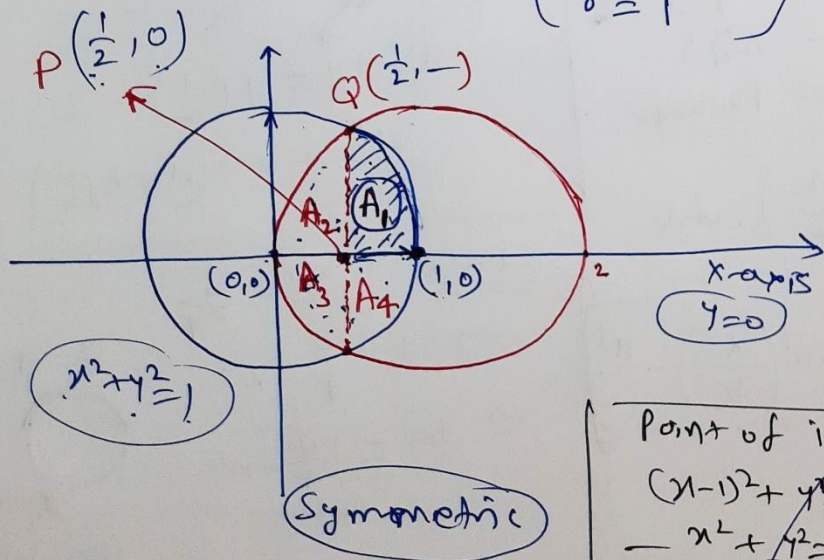 P(1/2, 0)
Q(1/2, —)
A₂
A₁
A₃
A₄
(0,0)
(1,0)
2
x-axis
y=0
x²+y²=1
Symmetric
Point of
(x-1)²+ y
— x² + y²